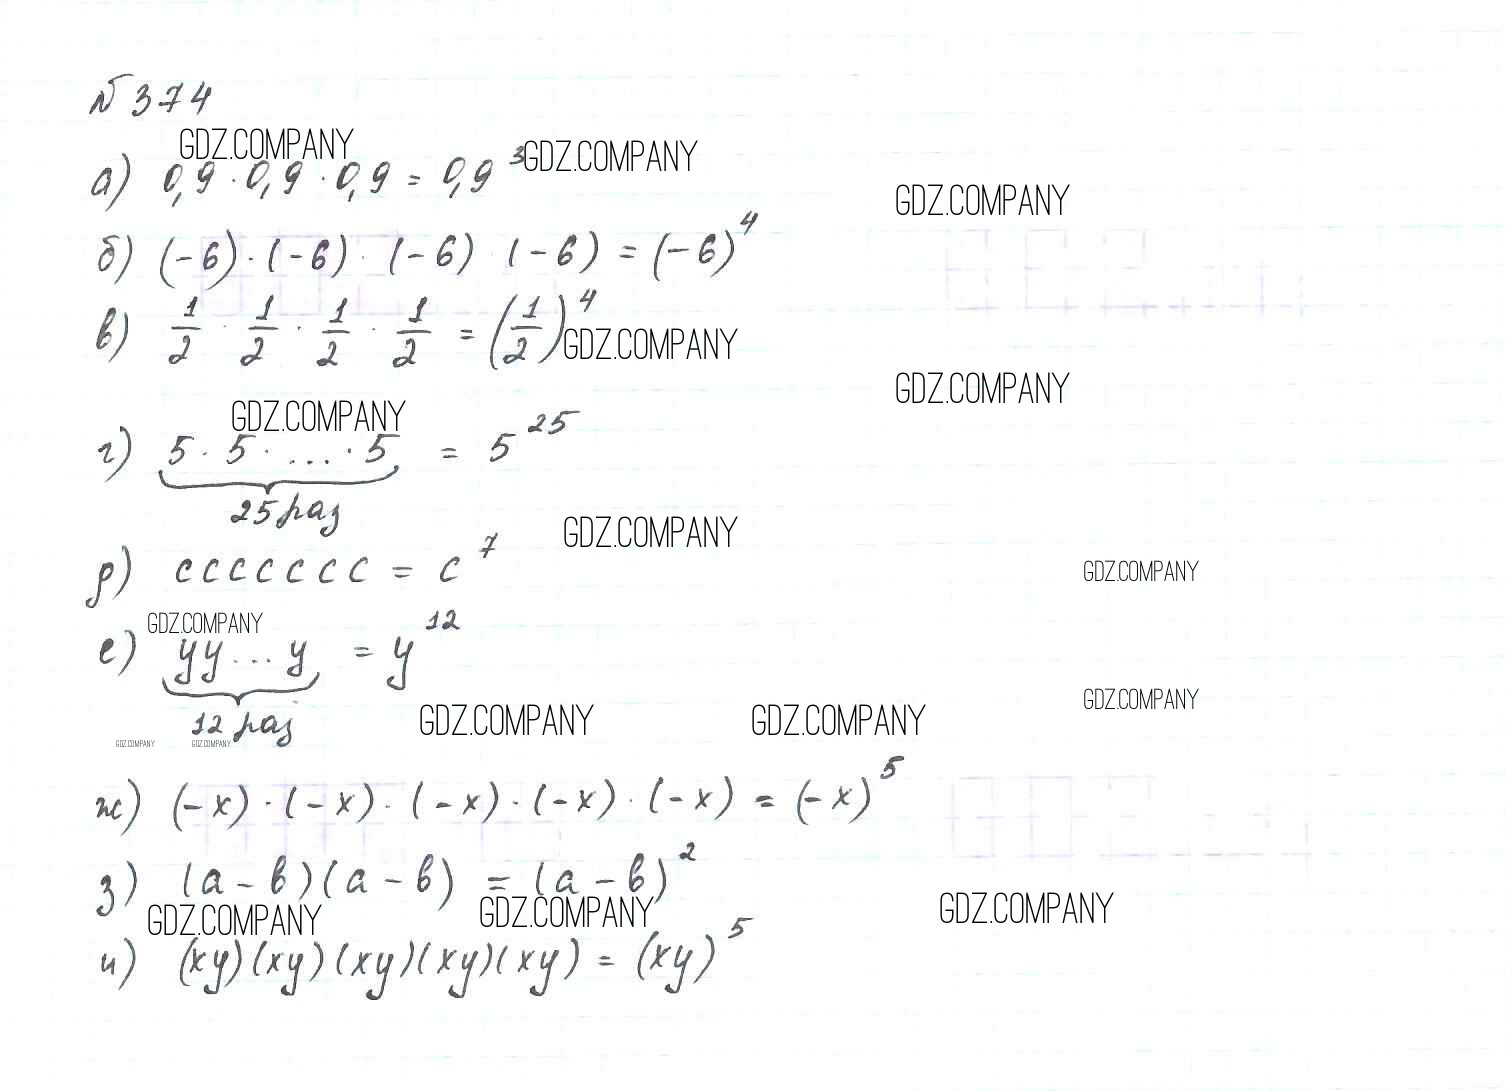 № 374
GDZ.COMPANY
а) 0,9 · 0,9 · 0,9 = 0,9³
GDZ.COMPANY
GDZ.COMPANY
б) (-6) · (-6) · (-6) (-6) = (-6)⁴
в) 1/2 · 1/2 · 1/2 · 1/2 = (1/2)⁴
GDZ.COMPANY
GDZ.COMPANY
GDZ.COMPANY
г) 5 · 5 · ... · 5 = 5²⁵
25 раз
GDZ.COMPANY
д) c c c c c c c = c⁷
GDZ.COMPANY
GDZ.COMPANY
е) y y ... y = y¹²
12 раз
GDZ.COMPANY
GDZ.COMPANY
GDZ.COMPANY
GDZ.COMPANY GDZ.COMPANY
ж) (-x) · (-x) · (-x) · (-x) · (-x) = (-x)⁵
з) (a - b)(a - b) = (a - b)²
GDZ.COMPANY
GDZ.COMPANY
GDZ.COMPANY
и) (xy)(xy)(xy)(xy)(xy) = (xy)⁵